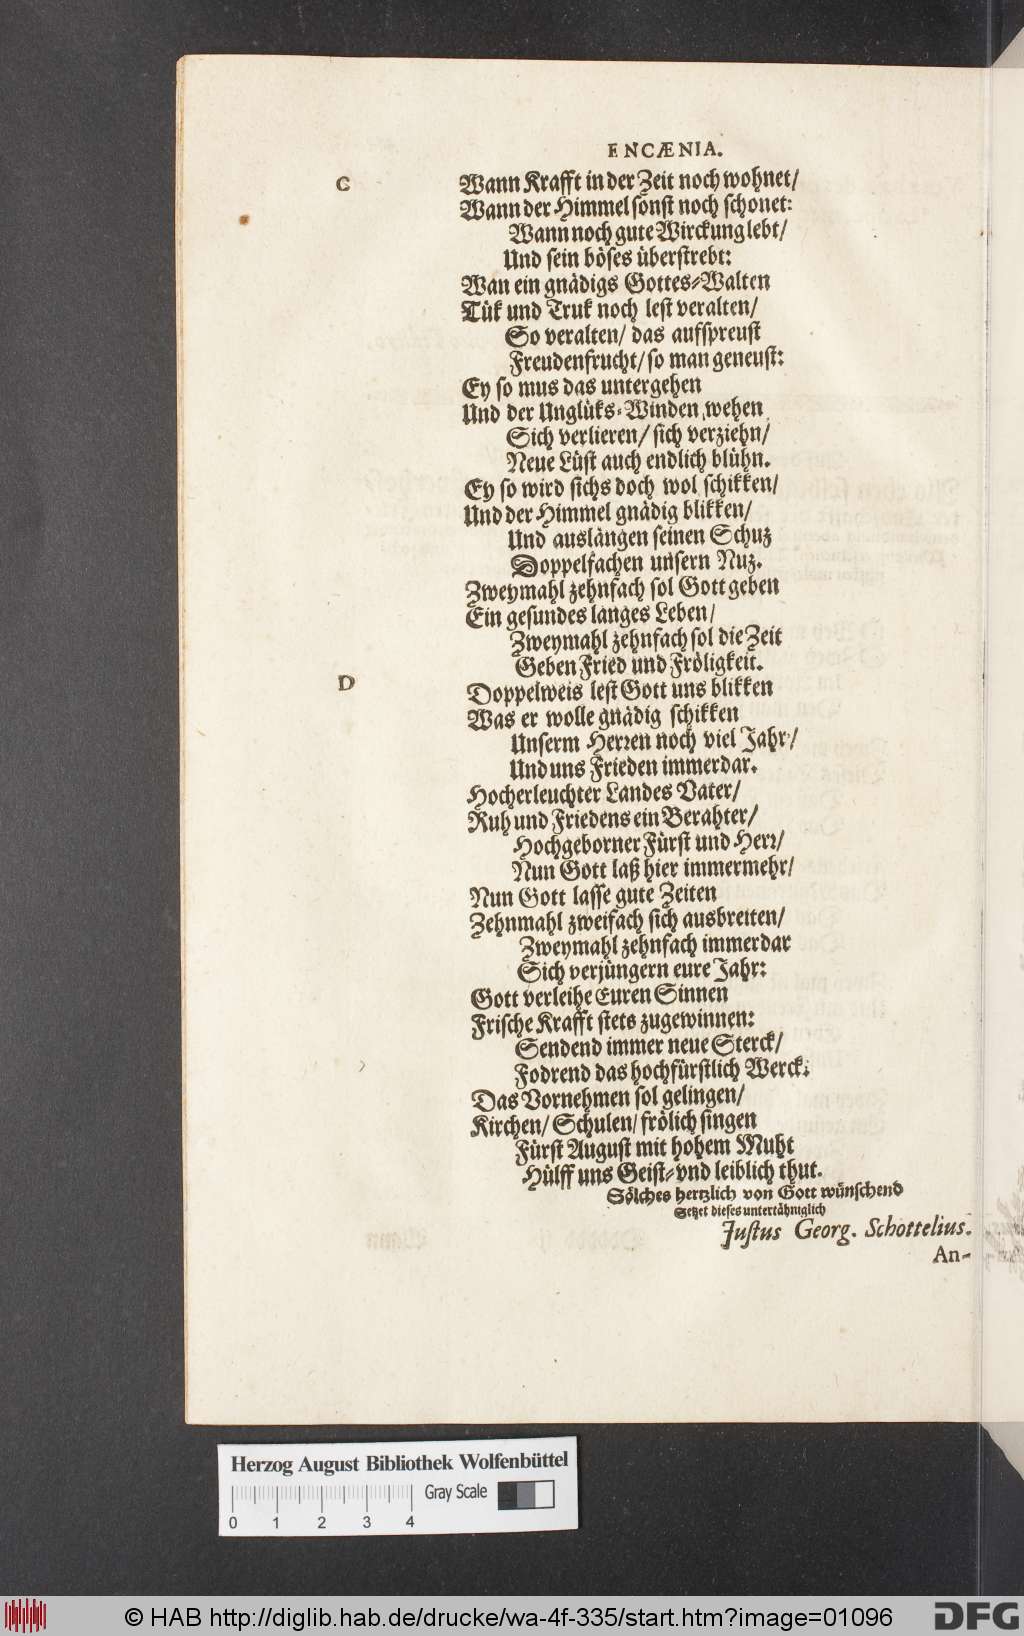 ENCÆNIA.
C
Wann Krafft in der Zeit noch wohnet/
Wann der Himmel sonst noch schonet:
Wann noch gute Wirckung lebt/
Und sein böses überstrebt:
Wan ein gnädigs Gottes-Walten
Tük und Truk noch lest veralten/
So veralten/ das aufspreust
Freudenfrucht/ so man geneust:
Ey so mus das untergehen
Und der Unglüks-Winden wehen
Sich verlieren/ sich verziehn/
Neue Lüst auch endlich blühn.
Ey so wird sichs doch wol schikken/
Und der Himmel gnädig blikken/
Und auslängen seinen Schuz
Doppelfachen unsern Nuz.
Zweymahl zehnfach sol Gott geben
Ein gesundes langes Leben/
Zweymahl zehnfach sol die Zeit
Geben Fried und Fröligkeit.
D
Doppelweis lest Gott uns blikken
Was er wolle gnädig schikken
Unserm Herren noch viel Jahr/
Und uns Frieden immerdar.
Hocherleuchter Landes Vater/
Ruh und Friedens ein Berahter/
Hochgeborner Fürst und Herr/
Nun Gott laß hier immermehr/
Nun Gott lasse gute Zeiten
Zehnmahl zweifach sich ausbreiten/
Zweymahl zehnfach immerdar
Sich verjüngern eure Jahr:
Gott verleihe Euren Sinnen
Frische Krafft stets zugewinnen:
Sendend immer neue Sterck/
Fodrend das hochfürstlich Werck:
Das Vornehmen sol gelingen/
Kirchen/ Schulen/ frölich singen
Fürst August mit hohem Muht
Hülff uns Geist-vnd leiblich thut.
Sölches hertzlich von Gott wünschend
Setzet dieses untertähniglich
Justus Georg. Schottelius.
An-
Herzog August Bibliothek Wolfenbüttel
Gray Scale
0 1 2 3 4
© HAB http://diglib.hab.de/drucke/wa-4f-335/start.htm?image=01096
DFG